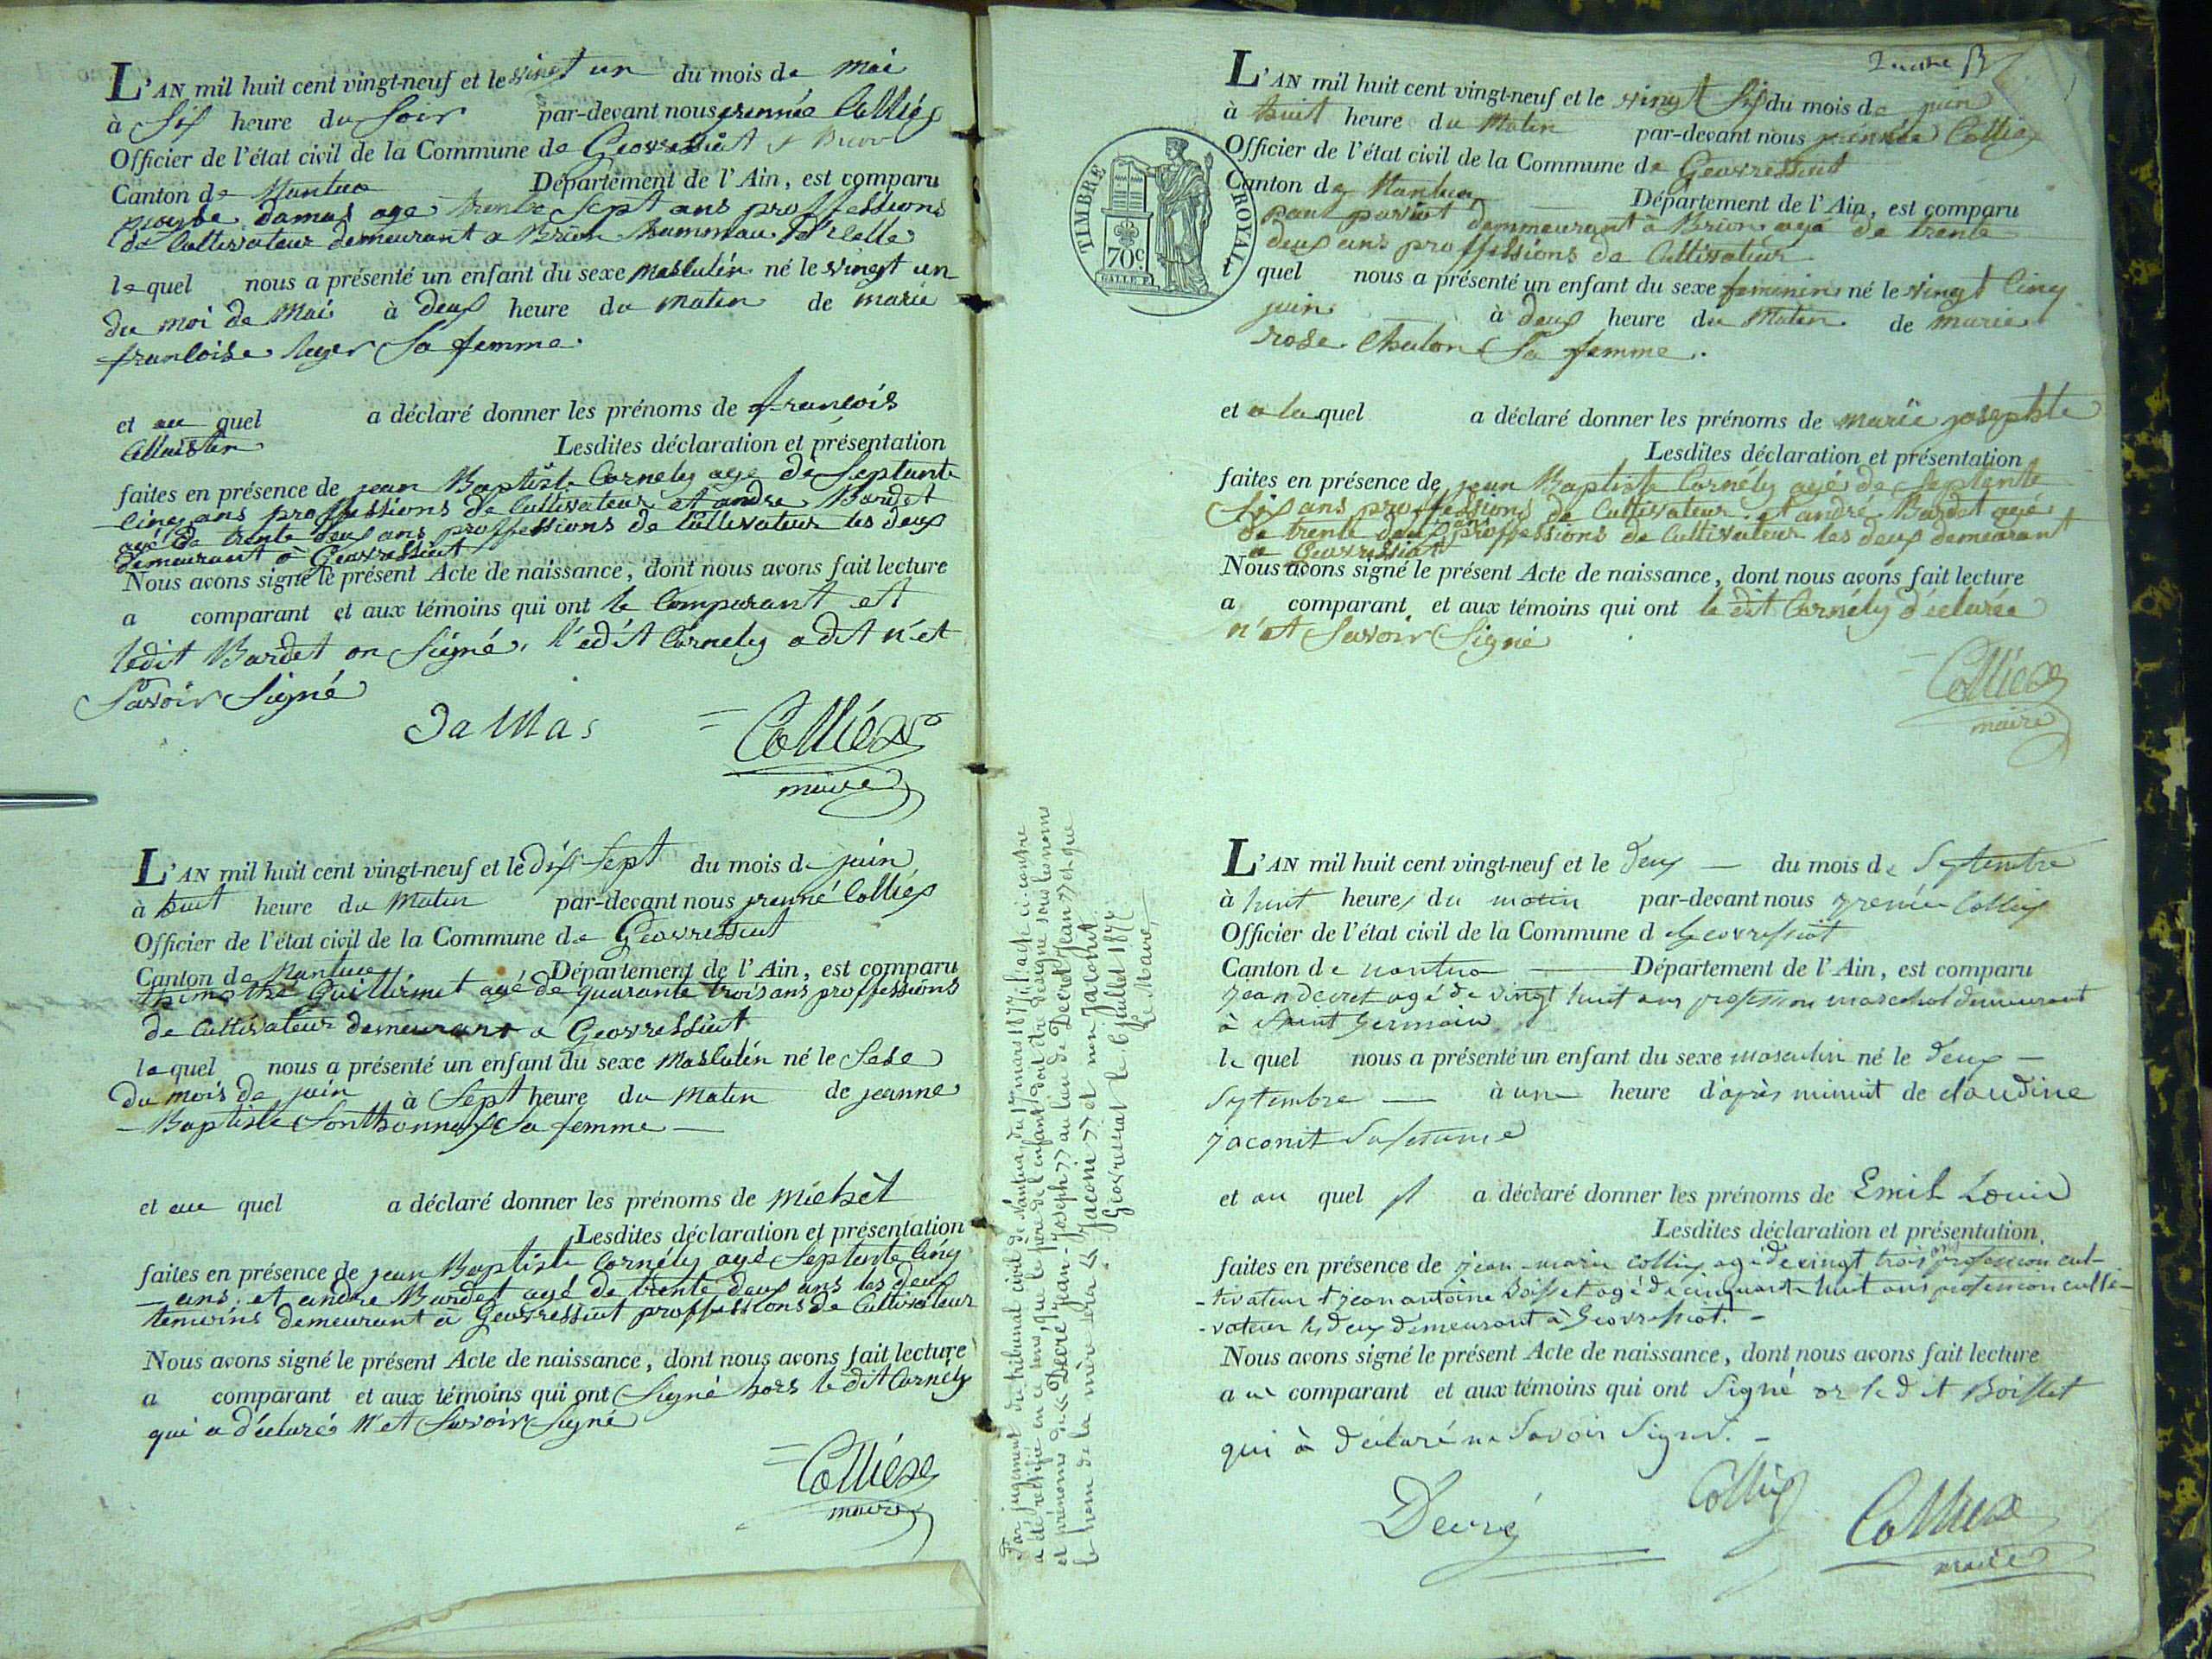 L'AN mil huit cent vingt-neuf et le vingt un du mois de Mai
à six heure du Soir par-devant nous
Officier de l'état civil de la Commune de Geovressiat
Canton de Nantua Département de l'Ain, est comparu
damas age trente Sept ans proffessions
de Cultivateur demeurant a Brion hammau
le quel nous a présenté un enfant du sexe Masculin né le vingt un
du moi de Mai à deux heure du Matin de marie
francoise Sa femme.
et au quel a déclaré donner les prénoms de francois
Lesdites déclaration et présentation
faites en présence de jean Baptiste Cornely age de Septante
cinq ans proffessions de Cultivateur et andre Bardet
agé de trente deux ans proffessions de Cultivateur les deux
demeurant a Geovressiat
Nous avons signé le présent Acte de naissance, dont nous avons fait lecture
a comparant et aux témoins qui ont le Comparant et
ledit Bardet on Signé, l'edit Cornely a dit n'et
Savoir Signé
Damas Colliex
maire
L'AN mil huit cent vingt-neuf et le dix Sept du mois de juin
à huit heure du Matin par-devant nous Colliex
Officier de l'état civil de la Commune de Geovressiat
Canton de Nantua Département de l'Ain, est comparu
Guillermet agé de quarante trois ans proffessions
de Cultivateur demeurant a Geovressiat
le quel nous a présenté un enfant du sexe Masculin né le Sese
du mois de juin à Sept heure du Matin de jeanne
Baptiste Sonthonnax Sa femme
et au quel a déclaré donner les prénoms de Michel
Lesdites déclaration et présentation
faites en présence de jean Baptiste Cornély agé Septente cinq
ans et andre Bardet agé de trente deux ans les deux
temoins demeurant a Geovressiat proffessions de Cultivateur
Nous avons signé le présent Acte de naissance, dont nous avons fait lecture
a comparant et aux témoins qui ont Signé hors le dit Cornely
qui a déclaré n'et Savoir Signé
Colliex
maire
L'AN mil huit cent vingt-neuf et le vingt Six du mois de juin
à huit heure du Matin par-devant nous Colliex
Officier de l'état civil de la Commune de Geovressiat
Canton de Nantua Département de l'Ain, est comparu
TIMBRE ROYAL
70c.
demmeurant à Brion agé de trente
deux ans proffessions de Cultivateur
quel nous a présenté un enfant du sexe feminin né le vingt Cinq
juin à deux heure du Matin de marie
rose Chalon Sa femme.
et a la quel a déclaré donner les prénoms de marie josephte
Lesdites déclaration et présentation
faites en présence de jean Baptiste Cornély agé de Septente
Six ans proffessions de Cultivateur et andré Bardet agé
de trente deux ans proffessions de Cultivateur les deux demeurant
a Geovressiat
Nous avons signé le présent Acte de naissance, dont nous avons fait lecture
a comparant et aux témoins qui ont le dit Cornély déclarée
n'et Savoir Signé
Colliex
maire
Par jugement du tribunal civil de Nantua, du 17 mars 1877, l'acte ci-contre
a été rectifié en ce sens, que le père de l'enfant doit être désigné sous les noms
et prénoms du « Decré Jean-Joseph » au lieu de « Decret Jean » et que
le nom de la mère sera « Jaconin » et non Jaconit.
Geovressiat le 6 juillet 1877
Le Maire,
L'AN mil huit cent vingt-neuf et le deux du mois de Septembre
à huit heures du matin par-devant nous Colliex
Officier de l'état civil de la Commune d Geovressiat
Canton de nantua Département de l'Ain, est comparu
jean decret agé de vingt huit ans profession marechal demeurant
à Saint Germain
le quel nous a présenté un enfant du sexe masculin né le deux
Septembre à une heure d'après minuit de claudine
jaconit Sa femme
et au quel il a déclaré donner les prénoms de Emil Louis
Lesdites déclaration et présentation
faites en présence de jean-marie Colliex agé de vingt trois ans profession cul-
-tivateur et jean antoine Boisset agé de cinquante huit ans profession culti-
-vateur les deux demeurant à Geovressiat.
Nous avons signé le présent Acte de naissance, dont nous avons fait lecture
au comparant et aux témoins qui ont Signé or le dit Boisset
qui à déclaré ne Savoir Signé.
Decré Colliex Colliex
maire